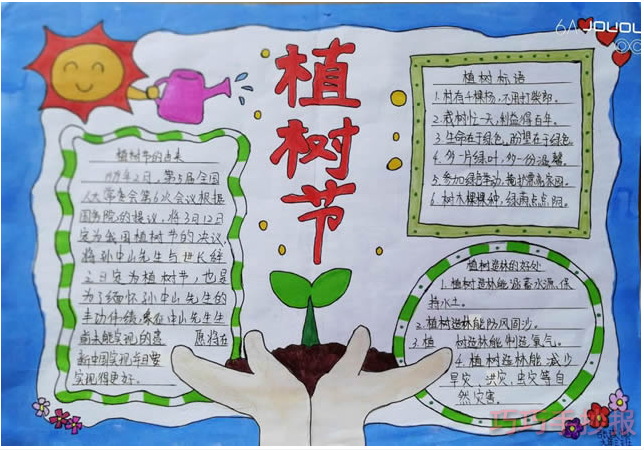 植树节
植树节的由来
1979年2月，第5届全国
人大常委会第6次会议根据
国务院的提议，将3月12日
定为我国植树节的决议，
将孙中山先生与世长辞
之日定为植树节，也是
为了缅怀孙中山先生的
丰功伟绩，
尚未能实现的遗愿将在
新中国实现并且要
实现得更好。
植树标语
1.村有千棵杨，不用打柴郎。
2.栽树忙一天，利益得百年。
3.生命在于绿色，希望在于绿色
4.多一片绿叶，多一份温馨
5.参加绿色
6.树木棵棵种，绿雨点点阴。
植树造林的好处
1.植树造林能涵蓄水源，保
持水土。
2.植树造林能防风固沙。
3.植树造林能制造氧气。
4.植树造林能减少
旱灾、洪灾、虫灾等自
然灾害。
巧巧手抄报